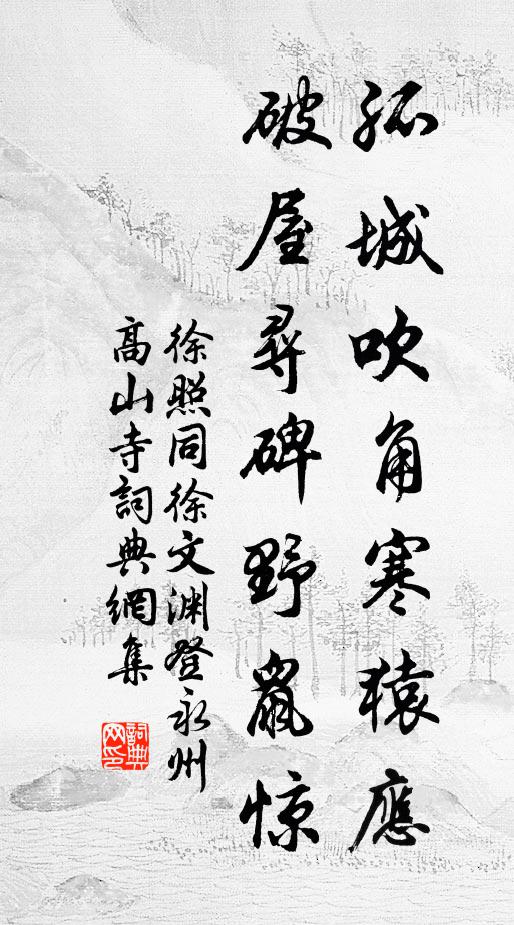 孤城吹角寒猿應
破屋尋碑野鼠惊
徐照同徐文渊登永州
高山寺詞典網集
詞典
网印